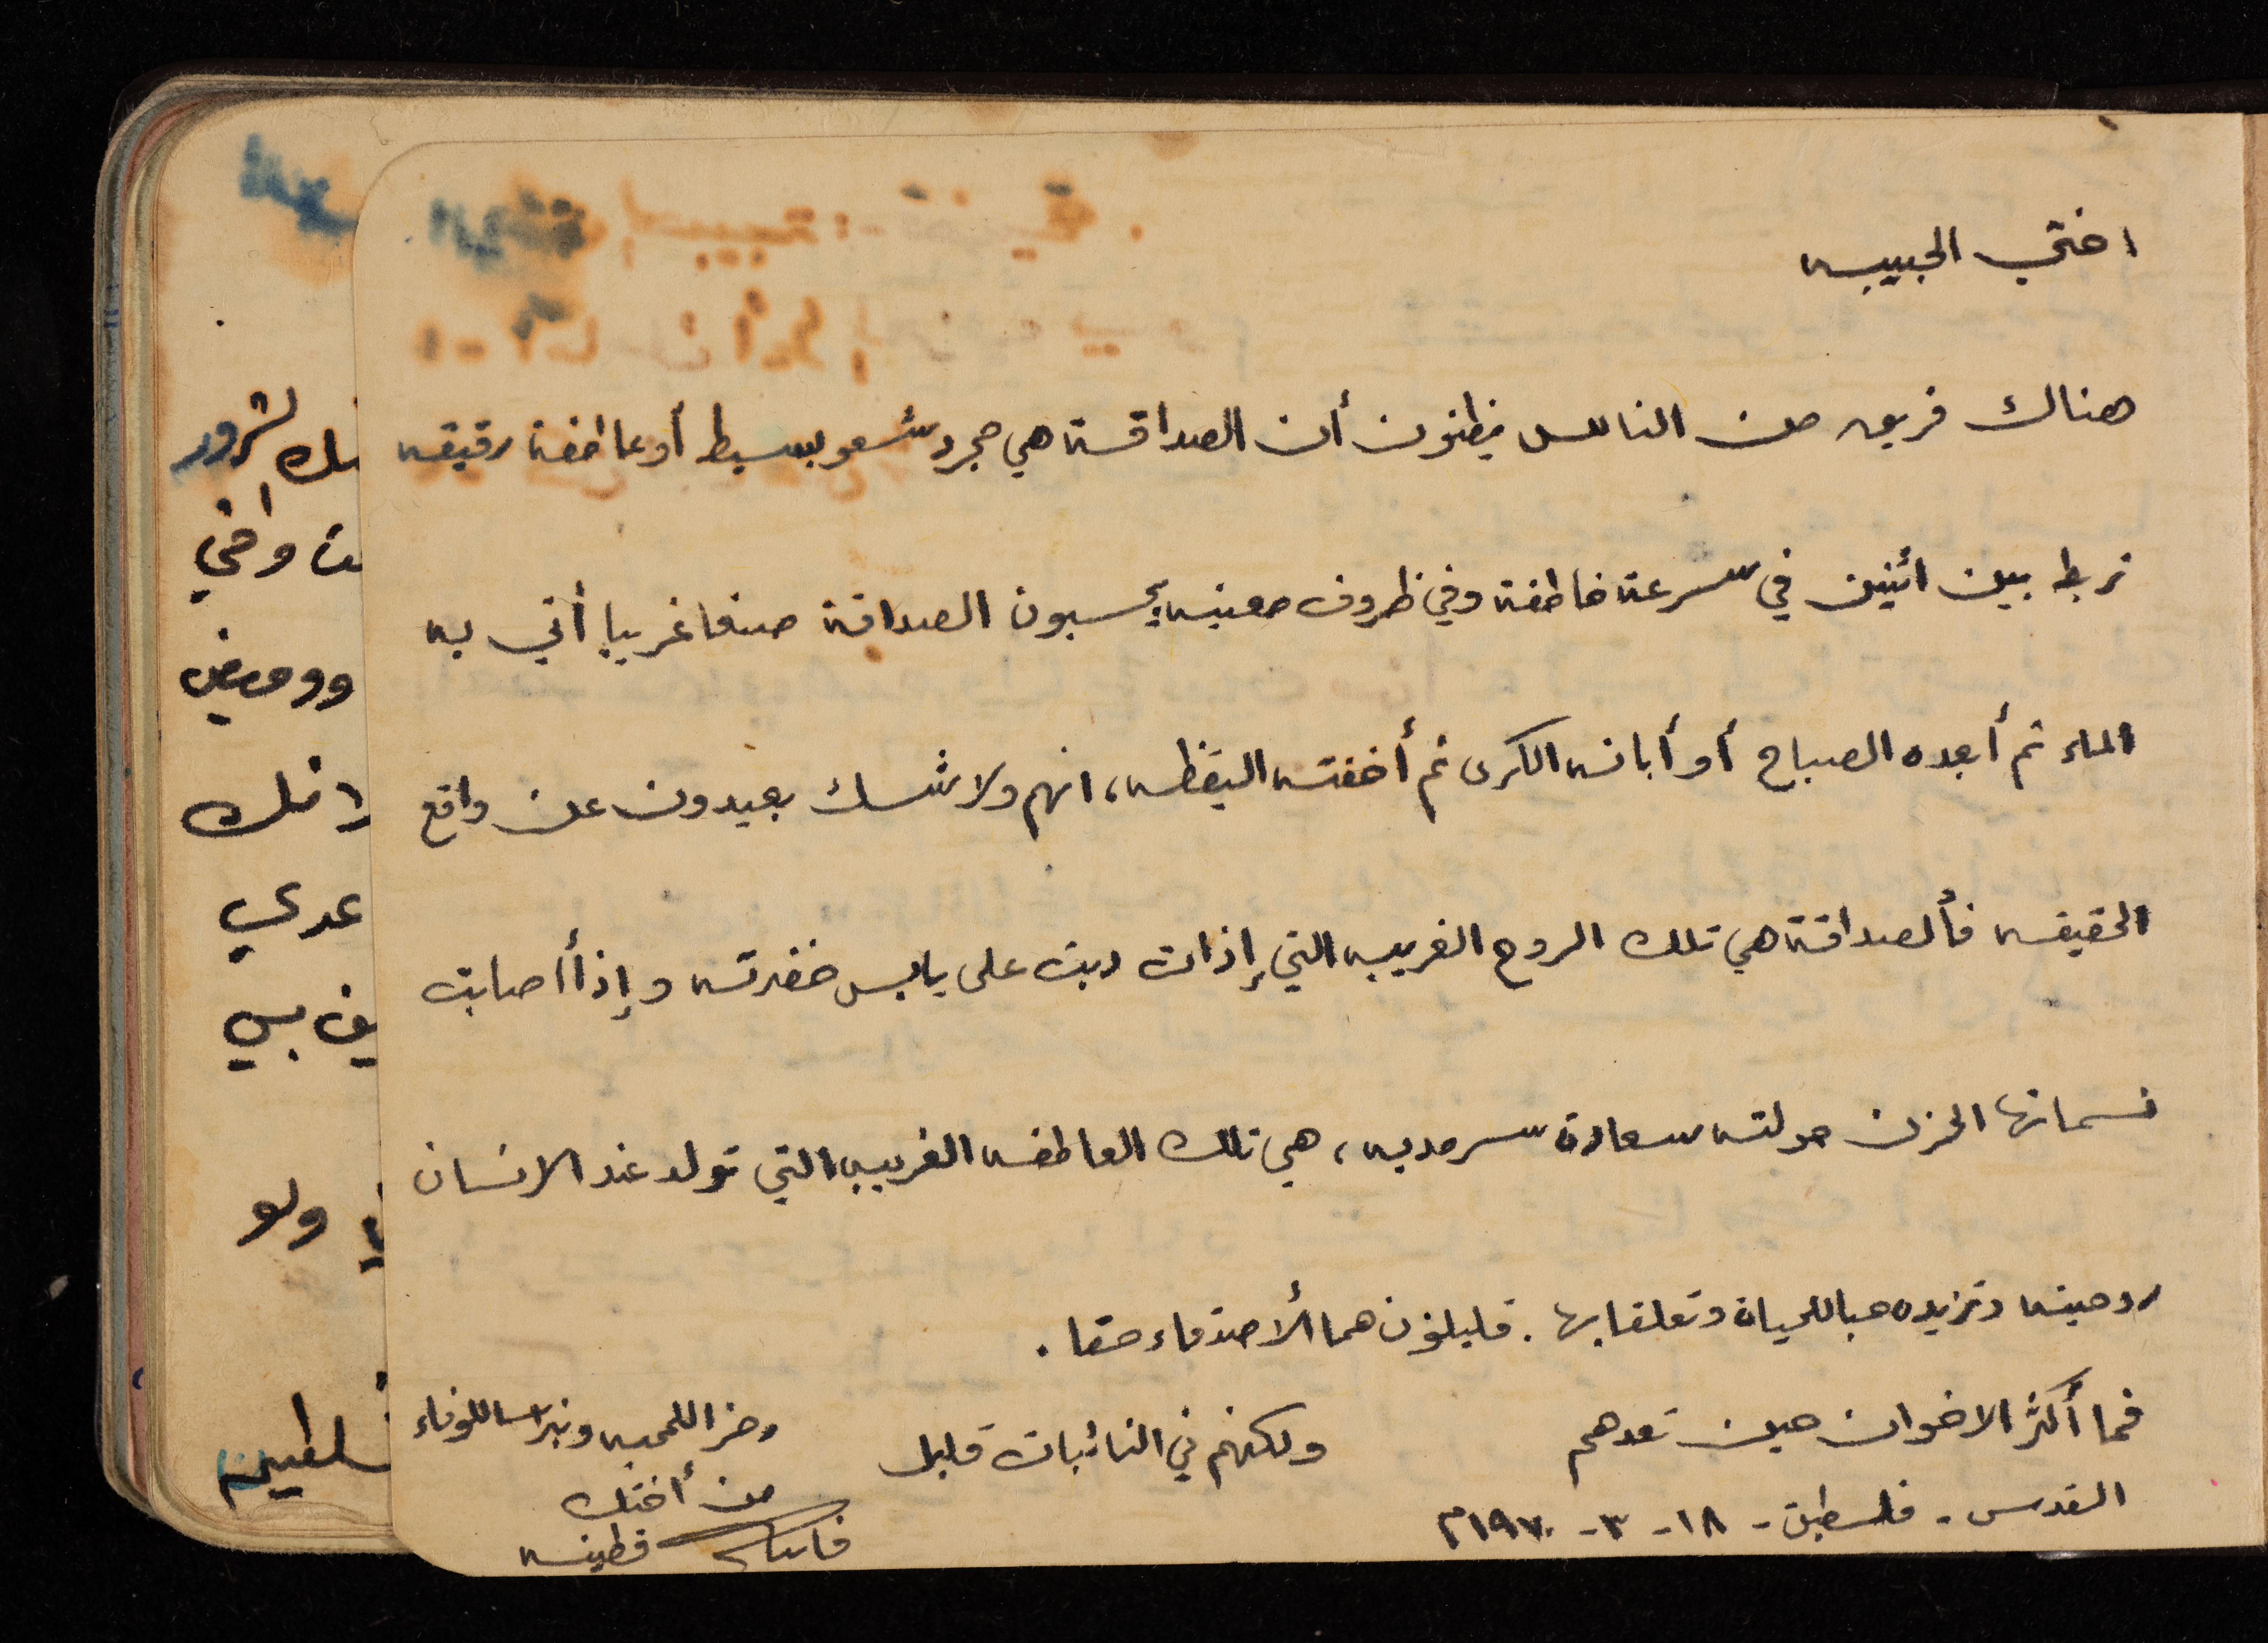 اختي الحبيبه
هناك فريق من الناس يظنون أن الصداقة هي مجرد شعور بسيط أو عاطفة رقيقه
تربط بين اثنين في سرعة خاطفة وفي ظروف معينه يحسبون الصداقة صنفا غريبا أتي به
الماء ثم أبعده الصباح أو أبانه الكرى ثم أخفته اليقظه، انهم ولا شك بعيدون عن واقع
الحقيقه فألصداقة هي تلك الروح الغريبه التي إذات دبت على يابس خضرته وإذا أصابت
نسماتها الحزن حولته سعادة سرمديه، هي تلك العاطفه الغريبه التي تولد عند الانسان
روحينه وتزيده حبا للحياة وتعلقا بها. قليلون هم الأصدقاء حقا.
فما أكثر الاخوان حين تعدهم ولكنهم في النائبات قليل
ورمزا للمحبه ونبراسا للوفاء
من أختك
قطينه
القدس - فلسطين - ١٨ - ٣ - ١٩٧٠م
لشرور
واخي
ووميض
عدي
بي
ولو
فلسطين